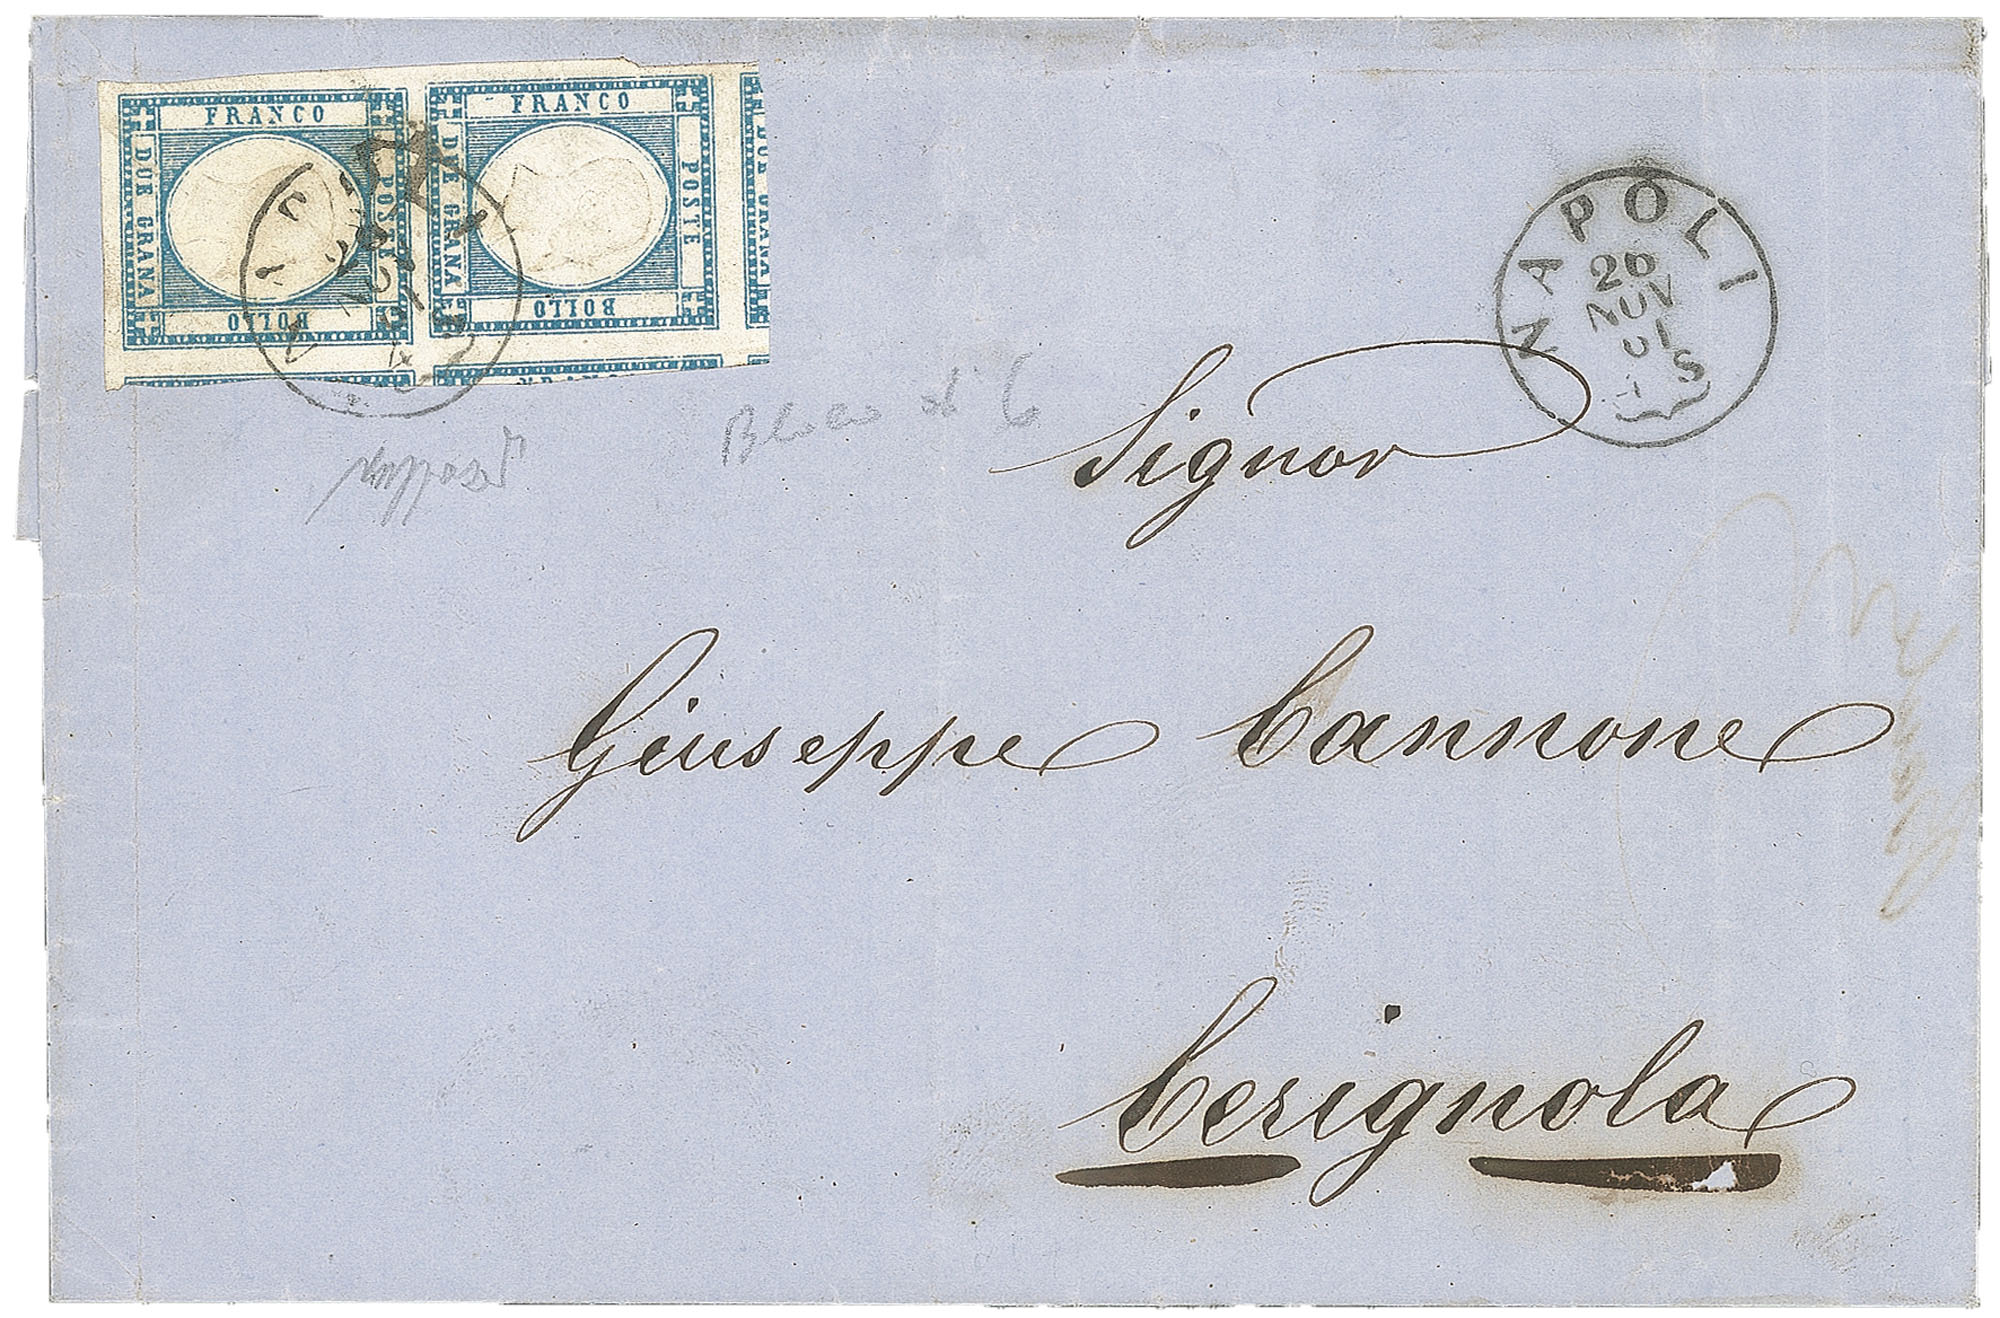 FRANCO
DUE GRANA
POSTE
BOLLO
FRANCO
DUE GRANA
POSTE
BOLLO
DUE GRANA
NAPOLI
26
NOV
61
Signor
Giuseppe Cannone
Cerignola